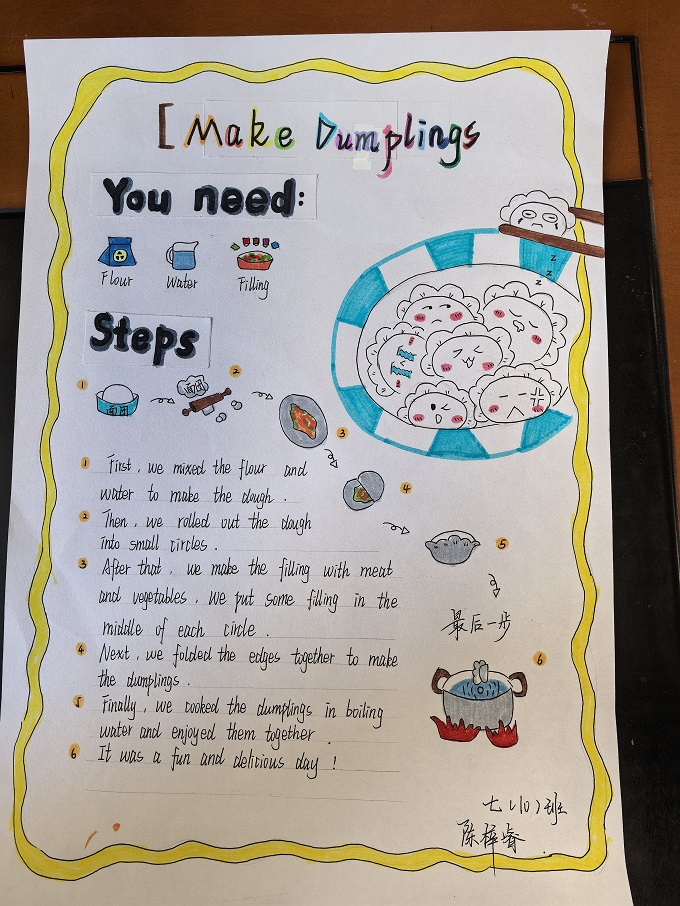 [Make Dumplings
You need:
Flour Water Filling
Steps
1 2 3 4 5 6
面团
面团
z z z
1 First, we mixed the flour and
water to make the dough.
2 Then, we rolled out the dough
into small circles.
3 After that, we make the filling with meat
and vegetables. We put some filling in the
middle of each circle.
4 Next, we folded the edges together to make
the dumplings.
5 Finally, we cooked the dumplings in boiling
water and enjoyed them together.
6 It was a fun and delicious day!
最后一步
七(10)班
陈梓睿